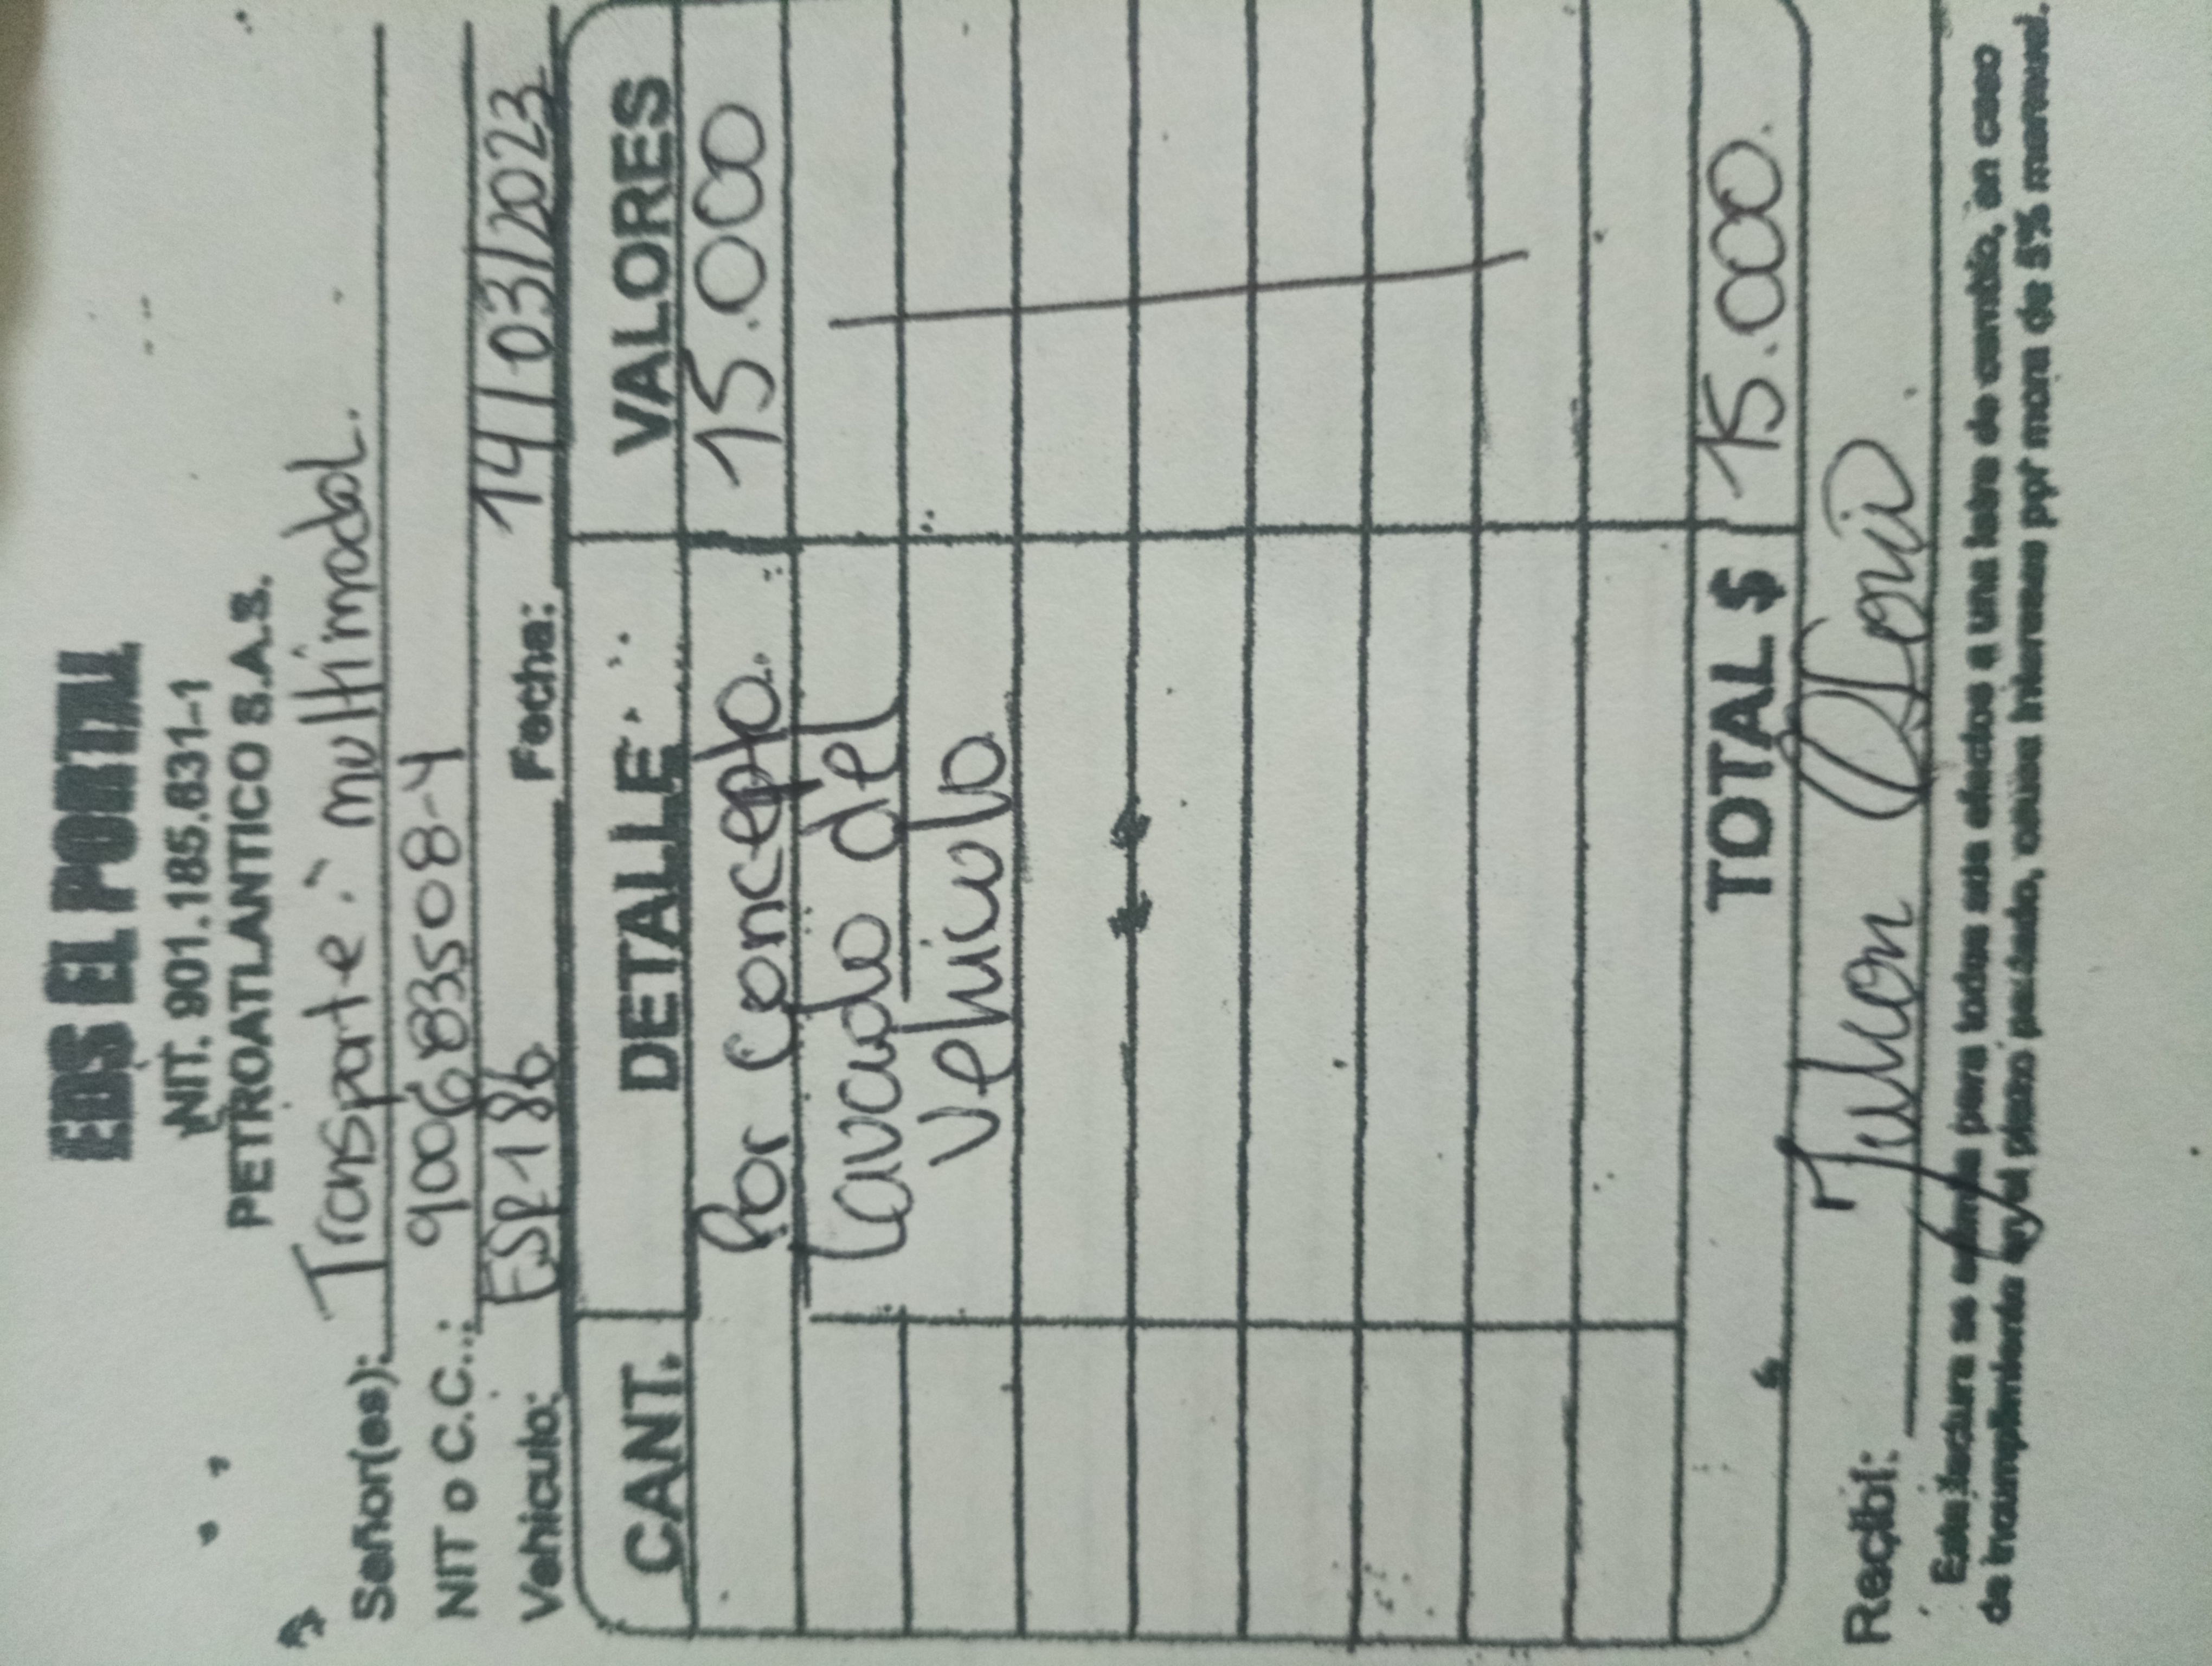 EDS EL PORTAL
NIT. 901.185.631-1
PETROATLANTICO S.A.S.
Señor(es): Transporte multimodal.
NIT o C.C.: 900683508-4
Vehiculo: ESR186 Fecha: 14/03/2023
CANT. DETALLE VALORES
Por Concepto 15.000
Lavado del
vehiculo
TOTAL $ 15.000.
Recibi: Julian Osorio
Esta factura se asimila para todos sus efectos a una letra de cambio, en caso
de incumplimiento en el plazo pautado, causa intereses por mora de 5% mensual.